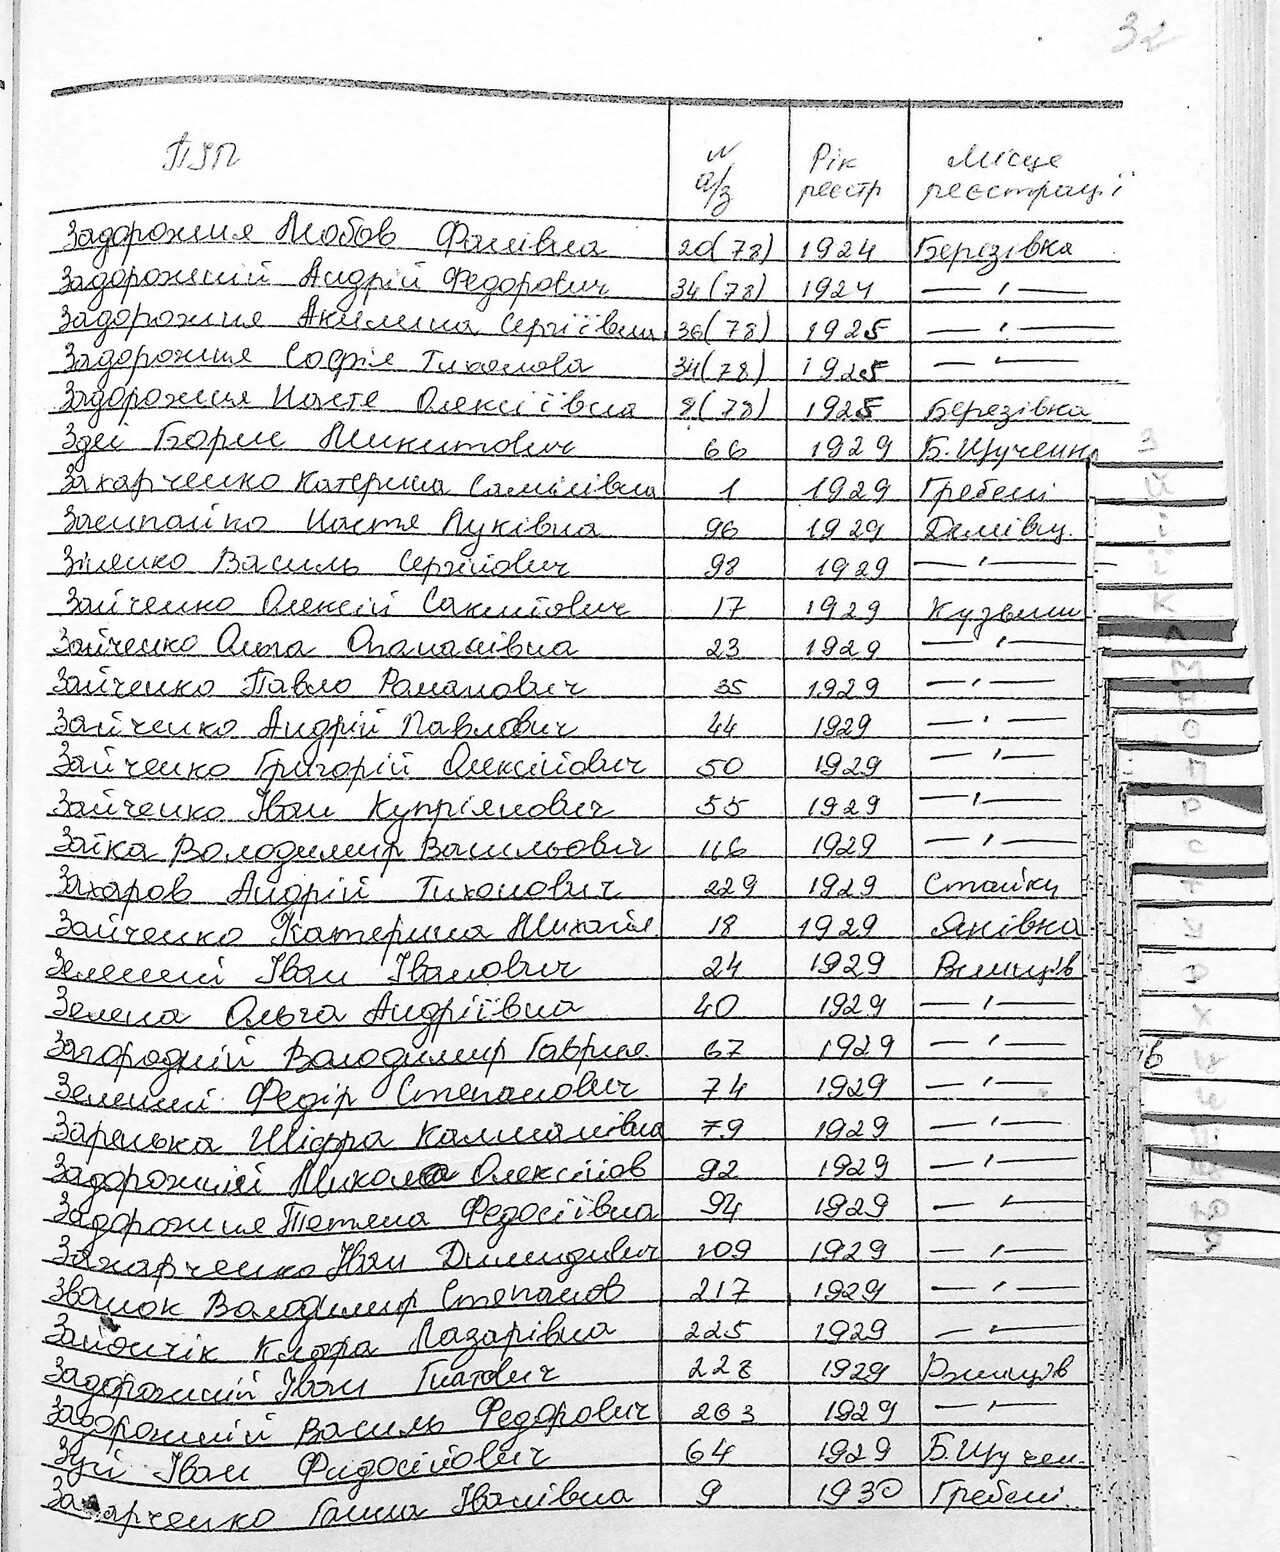 32
ПІП № а/з Рік реєстр Місце реєстрації
Задорожня Любов Фанівна 20(78) 1924 Березівка
Задорожній Андрій Федорович 34(78) 1924 —〃—
Задорожня Акилина Сергіївна 36(78) 1925 —〃—
Задорожня Софія Тихонова 34(78) 1925 —〃—
Задорожня Настя Олексіївна 8(78) 1925 Березівка
Здей Борис Микитович 66 1929 Б. Щученк
Захарченко Катерина Самійлівна 1 1929 Гребені
Настя Луківна 96 1929
Зіненко Василь Сергійович 98 1929 —〃—
Зайченко Олексій 17 1929 Кузьмин
Зайченко Ольга Опанасівна 23 1929 —〃—
Зайченко Павло Романович 35 1929 —〃—
Зайченко Андрій Павлович 44 1929 —〃—
Зайченко Григорій Олексійович 50 1929 —〃—
Зайченко Іван Купріянович 55 1929 —〃—
Заїка Володимир Васильович 116 1929 —〃—
Захаров Андрій Тихонович 229 1929 Стайки
Зайченко Катерина Михайл. 18 1929 Янівка
Зелений Іван Іванович 24 1929
Зелена Ольга Андріївна 40 1929 —〃—
Загородній Володимир Гаврил. 67 1929 —〃—
Зелений Федір Степанович 74 1929 —〃—
Зарецька Шіфра Калманівна 79 1929 —〃—
Задорожній Микола Олексійов 92 1929 —〃—
Задорожня Тетяна Федосіївна 94 1929 —〃—
Захарченко Іван Демидович 109 1929 —〃—
Званок Володимир Степанов 217 1929 —〃—
Зайончік Клара Лазарівна 225 1929 —〃—
Задорожній Іван Гнатович 228 1929 Ржищів
Задорожній Василь Федорович 263 1929 —〃—
Зуй Іван Фидосійович 64 1929 Б. Щучен.
Захарченко Ганна Іванівна 9 1930 Гребені